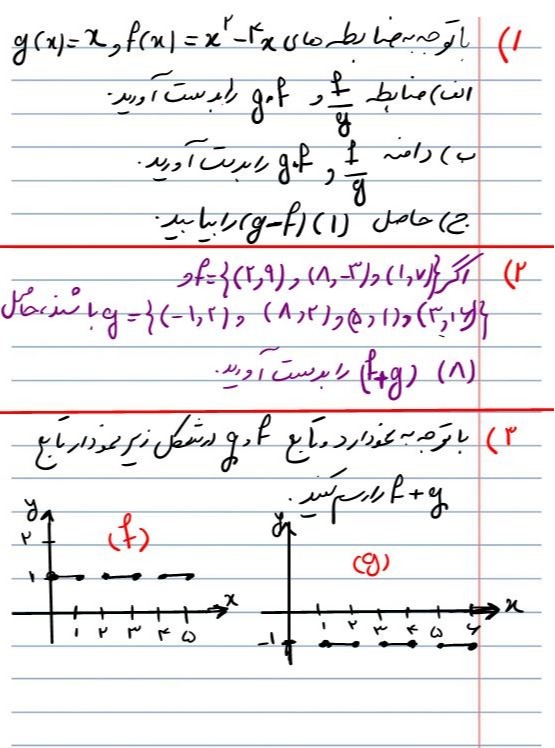 ۱) با توجه به ضابطه های f(x) = x² - ۴x و g(x) = x
الف) ضابطه f/g و g.f را بدست آورید.
ب) دامنه f/g و g.f را بدست آورید.
ج) حاصل (g-f)(۱) را بیابید.
۲) اگر f={(۲,۹) , (۸,-۳) , (۱,۷)} و
g={(-۱,۲) , (۸,۲) , (۵,۱) , (۳,۱۶)} باشند، حاصل
(f+g) (۸) را بدست آورید.
۳) با توجه به نمودار دو تابع f و g در شکل زیر نمودار تابع
f+g را رسم کنید.
y
۲
۱
(f)
۱ ۲ ۳ ۴ ۵
x
y
(g)
۱ ۲ ۳ ۴ ۵ ۶
x
-۱